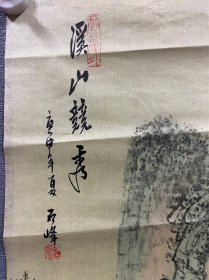 溪山競秀
庚申年夏 石峰